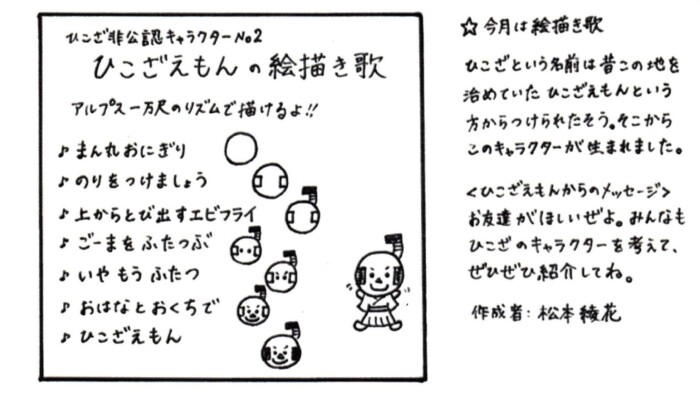 ひこざ非公認キャラクターNo2
ひこざえもんの絵描き歌
アルプス一万尺のリズムで描けるよ!!
♪まん丸おにぎり
♪のりをつけましょう
♪上からとび出すエビフライ
♪ごーまをふたつぶ
♪いやもうふたつ
♪おはなとおくちで
♪ひこざえもん
☆今月は絵描き歌
ひこざという名前は昔この地を
治めていたひこざえもんという
方からつけられたそう。そこから
このキャラクターが生まれました。
<ひこざえもんからのメッセージ>
お友達がほしいぜよ。みんなも
ひこざのキャラクターを考えて、
ぜひぜひ紹介してね。
作成者:松本綾花